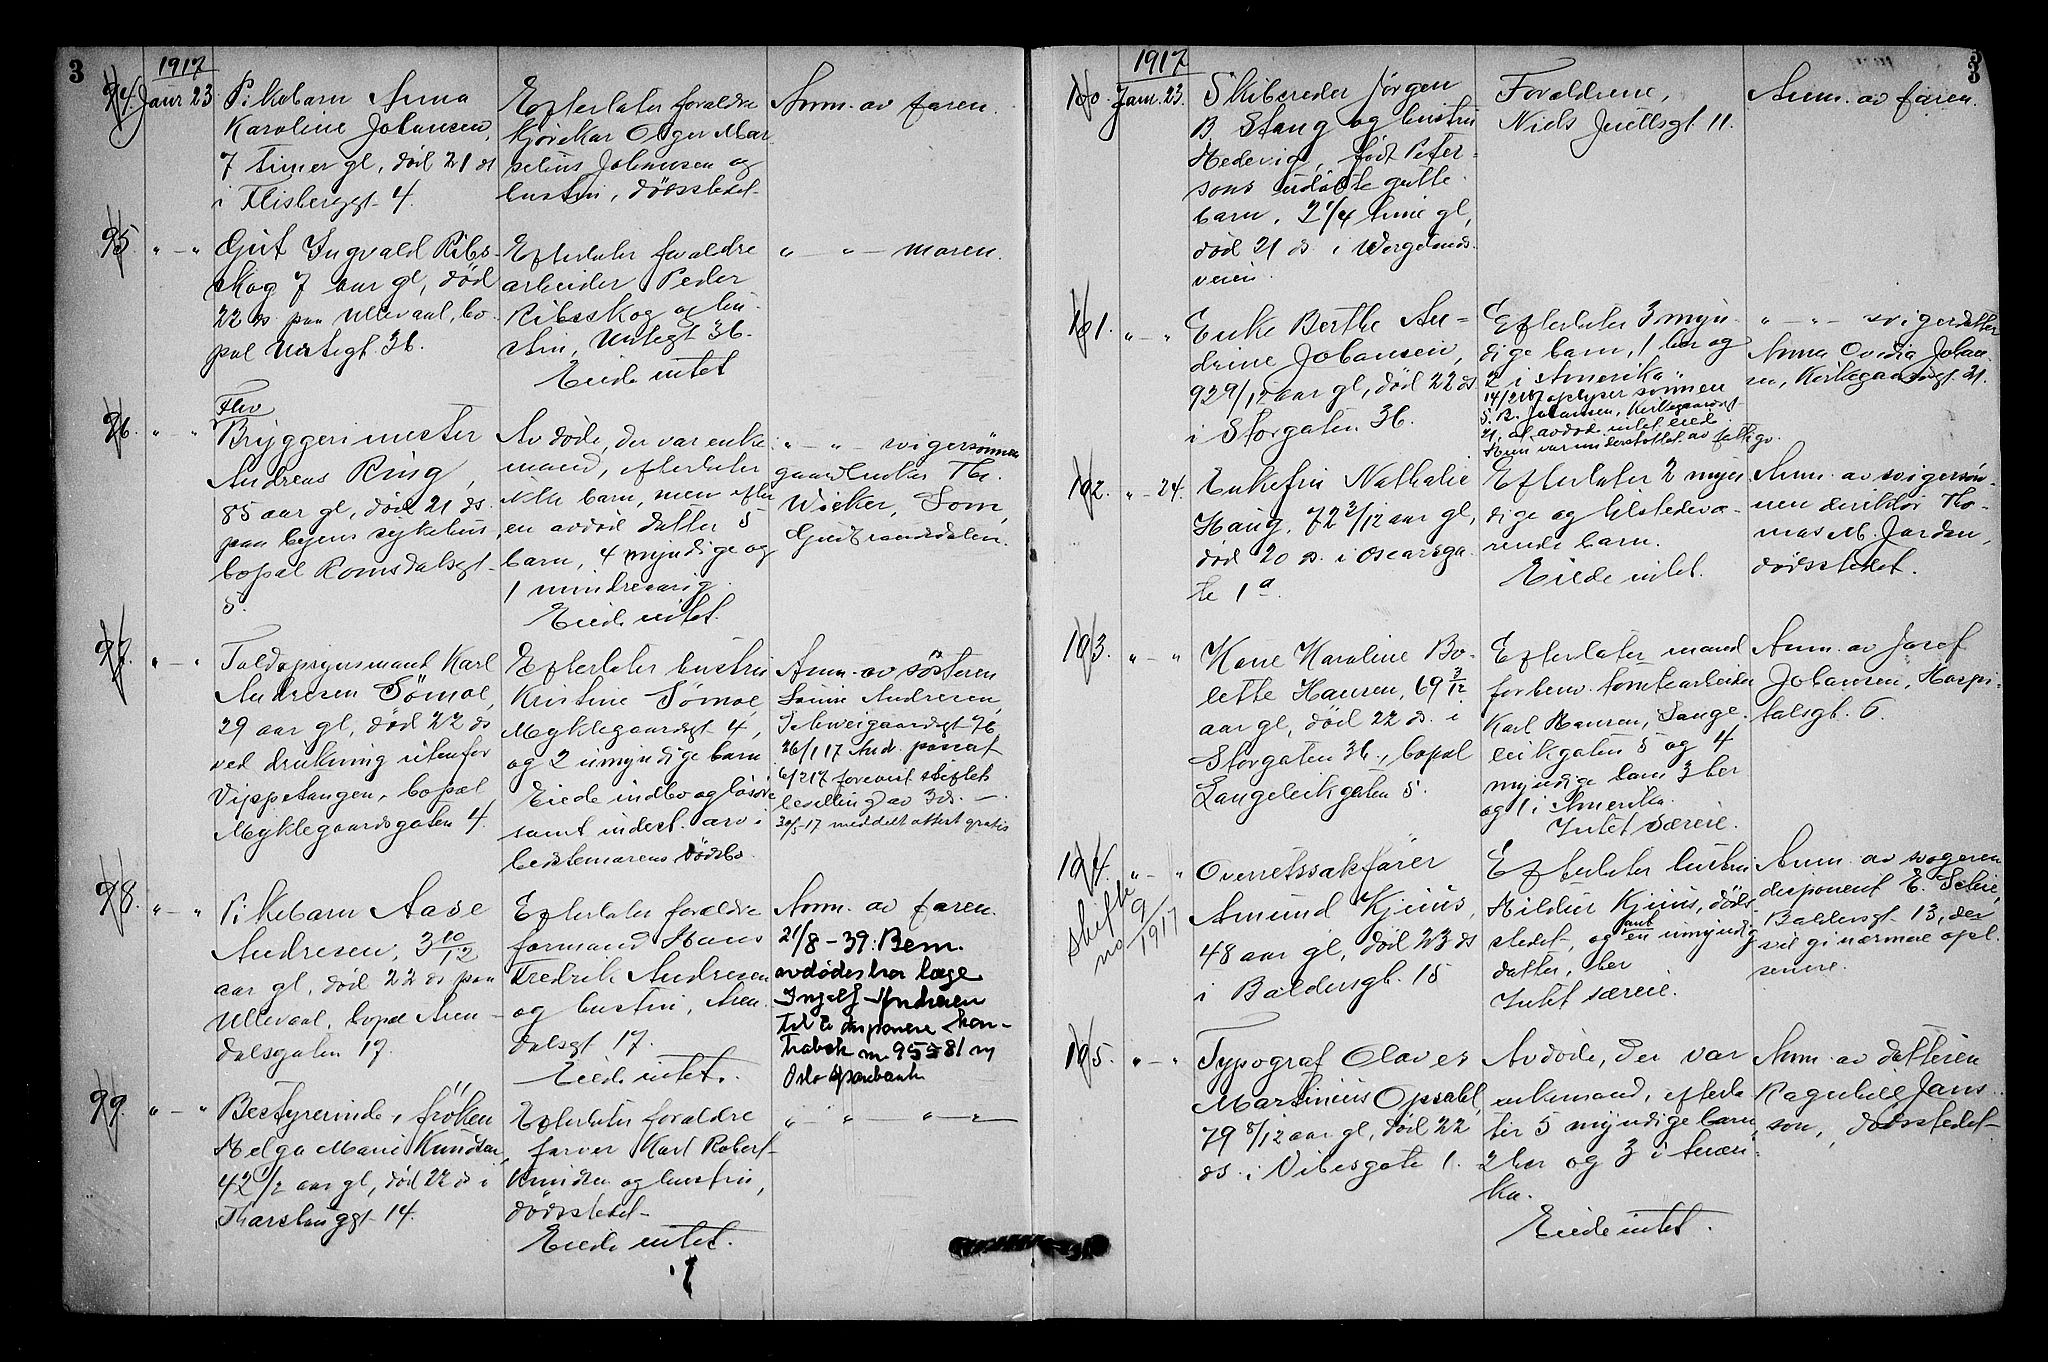 3
1917
94. Janr 23
Pikebarn Anna
Karoline Johansen,
7 timer gl, död 21 ds
i Flisberggt 4.
Efterlater forældre
kjörekar Olger Mar-
selius Johansen og
hustru, dödsstedet
Anm. av faren.
95. " — "
Gut Ingvald Ribs-
skog 7 aar gl, död
22 ds. paa Ullevaal, bo-
pæl Urtegt 36.
Efterlater forældre
arbeider Peder
Ribsskog og hu-
stru, Urtegt 36.
Eiede intet
" — " — moren.
96. " — "
Fhv
Bryggerimester
Andreas Ring,
85 aar gl, död 21 ds.
paa byens sykehus,
bopæl Romsdalsgt
5.
Avdöde, der var enke-
mand, efterlater
ikke barn, men efter
en avdöd datter 5
barn, 4 myndige og
1 mindreaarig.
Eiede intet.
" — " — svigersönnen
gaardbruker Th.
Wicker, Som,
Gudbrandsdalen.
97. " — "
Toldopsynsmand Karl
Andresen Sömoe,
29 aar gl, död 22 ds
ved drukning utenfor
Vippetangen, bopæl
Myklegaardsgaten 4.
Efterlater hustru
Kristine Sömoe
Myklegaardsgt 4,
og 2 umyndige barn
Eiede indbo og lösöre
samt indest. arv i
bestemorens dödsbo.
Anm. av sösteren
Louise Andresen,
Schweigaardsgt 76
26/1 17 And.
6/2 17 forevist skiftets
bevilling av 3 ds. —
30/5-17 meddelt attest gratis
98. " — "
Pikebarn Aase
Andresen, 3 10/12
aar gl, död 22 ds paa
Ullevaal, bopæl Aren-
dalsgaten 17.
Efterlater forældre
formand Hans
Fredrik Andresen
og hustru, Aren-
dalsgt 17.
Eiede intet.
Anm. av faren.
21/8 - 39: Bem.
avdödes bror læge
Ingolf Andresen
til å disponere kon-
trabok nr. 95581 m
Oslo Sparebank
99. " — "
Bestyrerinde, fröken
Helga Marie Knudsen,
42 1/2 aar gl, död 22 ds i
Tharsbuggt 14.
Efterlater forældre
farver Karl Robert
Knudsen og hustru,
dödsstedet
Eiede intet.
" — " — " — "
3
1917
100. Jan. 23.
Skibsreder Jörgen
B. Stang og hustru
Hedevig, född Peter-
sons udöbte gutte-
barn, 2 1/4 time gl,
död 21 ds. i Wergelands-
veien.
Forældrene,
Niels Juellsgt 11.
Anm. av faren.
101. " — "
Enke Berthe An-
drine Johansen,
92 9/12 aar gl, död 22 ds
i Storgaten 36.
Efterlater 3 myn-
dige barn, 1 her og
2 i Amerika.
14/2 17 oplyser sönnen
S. B. Johansen, Kirkegaardsgt
21, at avdöde intet eied
Hun var understöttet av fattigv.
" — " — svigerdatter
Anna Ovidia Johan-
sen, Kirkegaardsgt. 21.
102. " — 24.
Enkefru Nathalie
Haug, 72 3/12 aar gl,
död 20 ds. i Oscarsga-
te 1 a.
Efterlater 2 myn-
dige og tilstedevæ-
rende barn.
Eiede intet.
Anm. av svigersön-
nen direktör Tho-
mas M. Jordan,
dödsstedet.
103. " — "
Kone Karoline Bo-
lette Hansen, 69 3/12
aar gl, död 22 ds. i
Storgaten 36, bopæl
Langeleikgaten 5.
Efterlater mand
forhenv. tomtearbeider
Karl Hansen, Lange-
leikgaten 5 og 4
myndige barn 3 her
og 1 i Amerika.
Intet særeie.
Anm. av Josef
Johansen, Hospi-
talsgt. 6.
104. " — "
Skifte
no 9/1917
Overretssakförer
Amund Kjuus,
48 aar gl, död 23 ds
i Baldersgt. 15
Efterlater hustru
Hildur Kjuus, döds-
stedet, og en umyndig
datter, her
Intet særeie.
Anm. av svogeren
disponent E. Schie,
Baldersgt. 13, der
vil gi nærmere opl.
senere.
105. " — "
Typograf Olaves
Martinius Opsahl,
79 8/12 aar gl, död 22
ds. i Vibesgate 1.
Avdöde, der var
enkemand, efterla-
ter 5 myndige barn,
2 her og 3 i Ameri-
ka.
Eiede intet.
Anm. av datteren
Ragnhild Jans-
son, dödsstedet